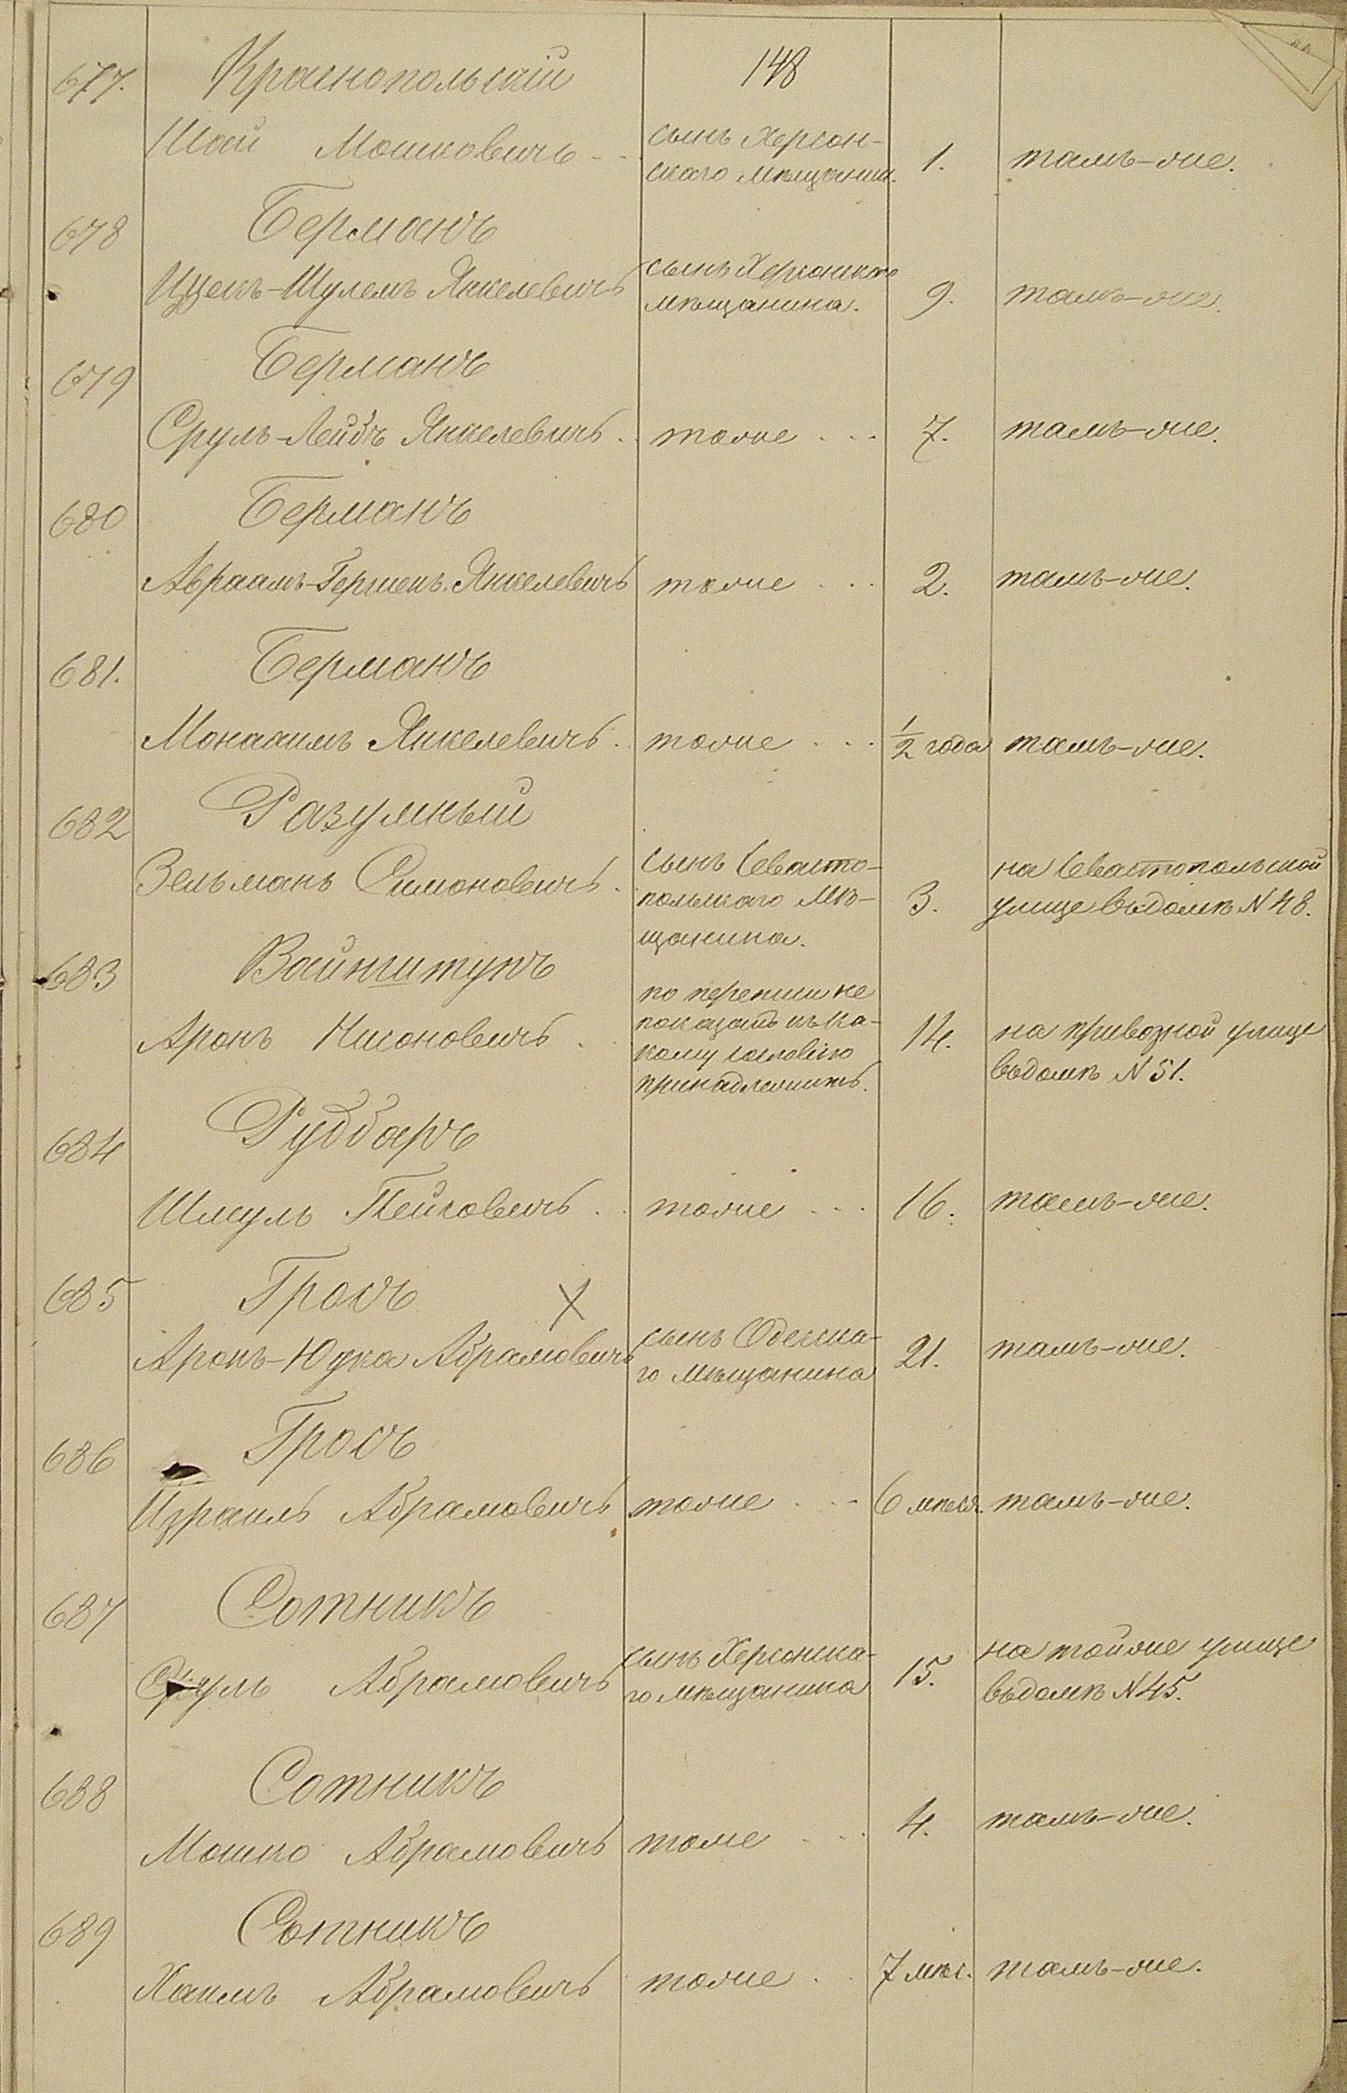 148
677. Краснопольскій
Шай Мошковичъ
сынъ Херсон-
скаго мѣщанин.
1.
тамъ-же.
678 Берманъ
Ицекъ-Шулемъ Янкелевичъ
сынъ Херсонскаго
мѣщанина.
9.
тамъ-же.
679 Берманъ
Сруль-Лейбъ Янкелевичъ
тоже
7.
тамъ-же.
680 Берманъ
Авраамъ-Гершенъ Янкелевичъ
тоже
2.
тамъ-же.
681. Берманъ
Монааимъ Янкелевичъ
тоже
1/2 года
тамъ-же.
682 Разумный
Зельманъ Симоновичъ
сынъ Севасто-
польскаго мѣ-
щанина.
3.
на Севастопольской
улице въ домѣ N 48.
683 Вайнштупъ
Аронъ Нисоновичъ
по переписи не
показанъ къ ка-
кому сословію
принадлежитъ.
14.
на привозной улице
въ домѣ N 51.
684 Руббаръ
Шмуль Пейсовичъ
тоже
16.
тамъ-же.
685 Гросъ X
Аронъ-Юдка Абрамовичъ
сынъ Одесска-
го мѣщанина
21.
тамъ-же.
686 Гросъ
Израиль Абрамовичъ
тоже
6 мѣся.
тамъ-же.
687 Сотникъ
Сруль Абрамовичъ
сынъ Херсонска-
го мѣщанина
15.
на той же улице
въ домѣ N 45.
688 Сотникъ
Мошко Абрамовичъ
тоже
4.
тамъ-же.
689 Сотникъ
Хаимъ Абрамовичъ
тоже
7 мѣс.
тамъ-же.